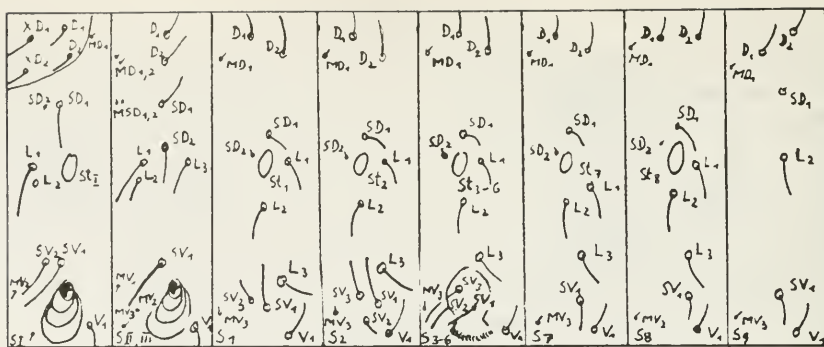 XD1 D1 MD1
XD2 D2
SD2 SD1
L1 L2 StI
SV2 SV1
MV2
V1
SI
D1
D2
MD1,2
MSD1,2 SD1
SD2
L1 L2 L3
SV1
MV2
MV3
V1
SII, III
D1 D2
MD1
SD1
SD2 L1
St1
L2
L3
SV3 SV1
MV3
V1
S1
D1 D2
MD1
SD1
SD2 L1
St2
L2
L3
SV3 SV1
SV2
MV3
V1
S2
D1 D2
MD1
SD1
SD2 L1
St3-6
L2
L3
SV3
SV2 SV1
MV3
V1
S3-6
D1 D2
MD1
SD1
SD2
St7
L1
L2
L3
SV1
MV3
V1
S7
D1 D2
MD1
SD1
SD2
St8 L1
L2
L3
SV1
MV2
V1
S8
D1 D2
MD1
SD1
L2
SV1
V1
S9